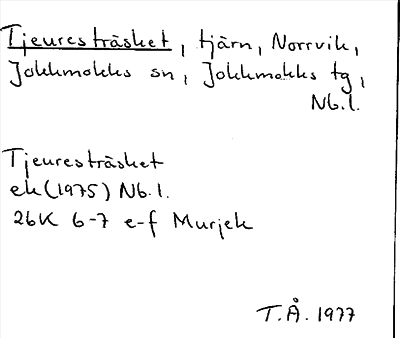 Tjeuresträsket, tjärn, Norrvik,
Jokkmokks sn, Jokkmokks tg,
Nb.l.
Tjeuresträsket
ek (1975) Nb.l.
26K 6-7 e-f Murjek
T.Å. 1977